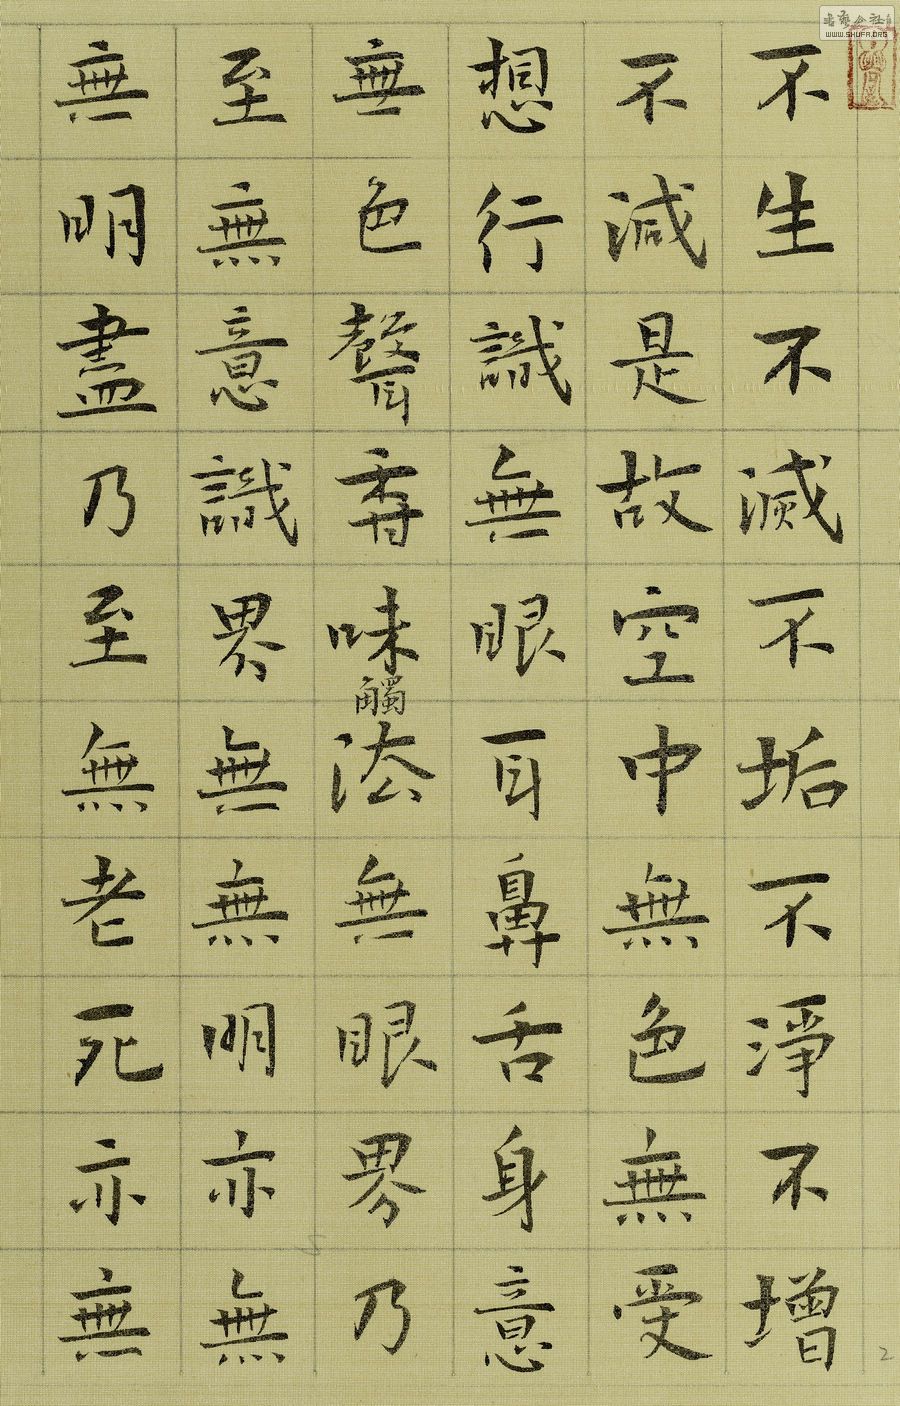 不生不滅不垢不淨不增
不減是故空中無色無受
想行識無眼耳鼻舌身意
無色聲香味觸法無眼界乃
至無意識界無無明亦無
無明盡乃至無老死亦無
WWW.SHUFA.ORG
2